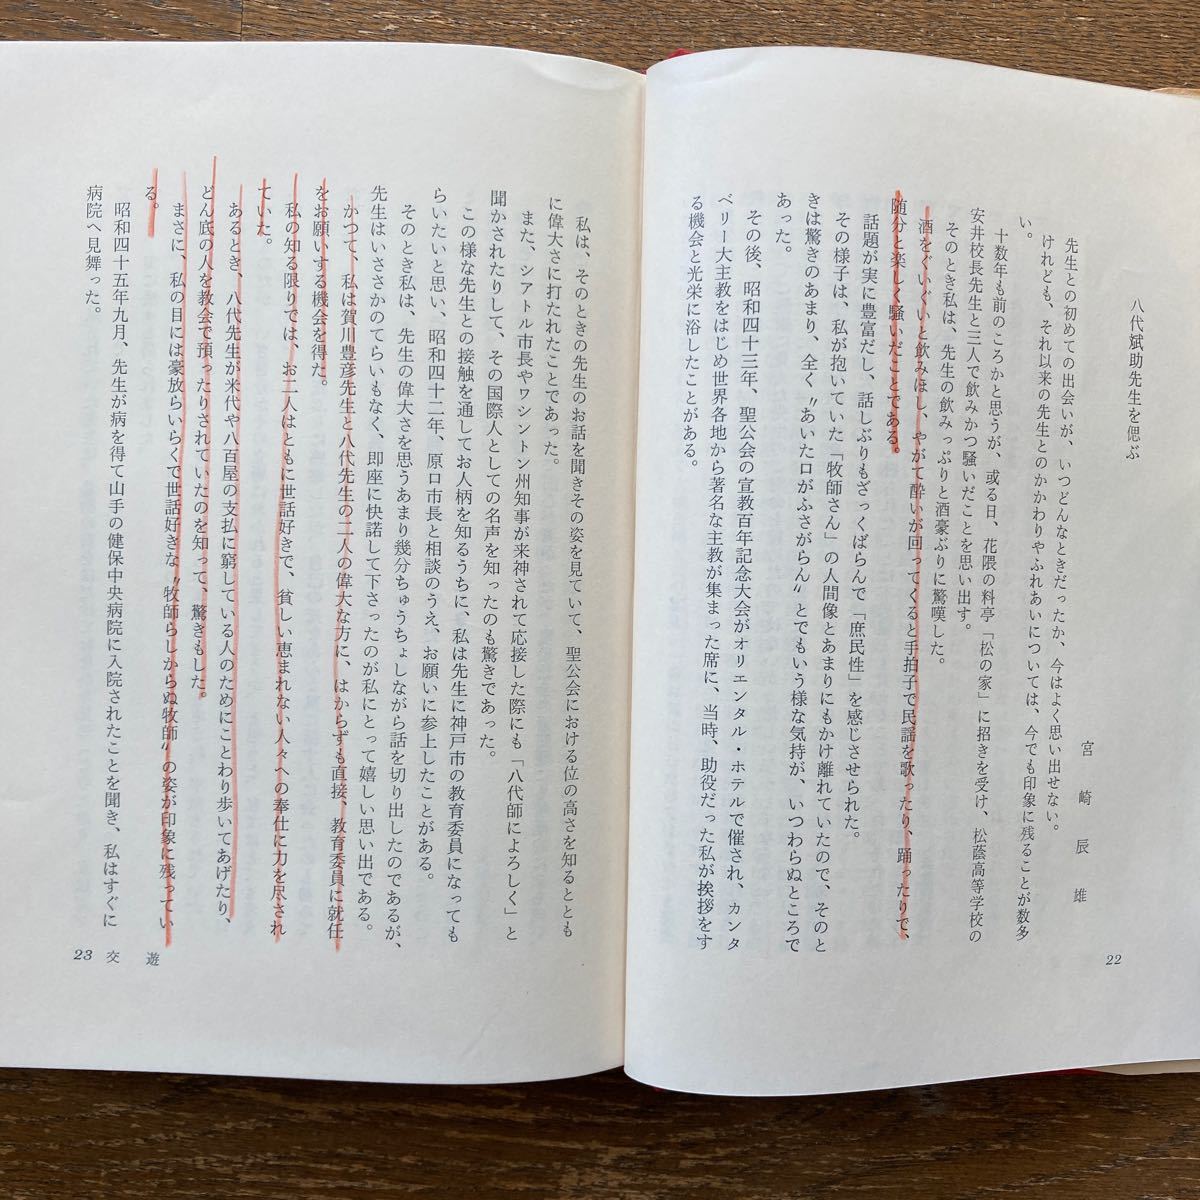 八代斌助先生を偲ぶ
宮崎辰雄
先生との初めての出会いが、いつどんなときだったか、今はよく思い出せない。
けれども、それ以来の先生とのかかわりやふれあいについては、今でも印象に残ることが数多
い。
十数年も前のころかと思うが、或る日、花隈の料亭「松の家」に招きを受け、松蔭高等学校の
安井校長先生と三人で飲みかつ騒いだことを思い出す。
そのとき私は、先生の飲みっぷりと酒豪ぶりに驚嘆した。
酒をぐいぐいと飲みほし、やがて酔いが回ってくると手拍子で民謡を歌ったり、踊ったりで、
随分と楽しく騒いだことである。
話題が実に豊富だし、話しぶりもざっくばらんで「庶民性」を感じさせられた。
その様子は、私が抱いていた「牧師さん」の人間像とあまりにもかけ離れていたので、そのと
きは驚きのあまり、全く〝あいた口がふさがらん〟とでもいう様な気持が、いつわらぬところで
あった。
その後、昭和四十三年、聖公会の宣教百年記念大会がオリエンタル・ホテルで催され、カンタ
ベリー大主教をはじめ世界各地から著名な主教が集まった席に、当時、助役だった私が挨拶をす
る機会と光栄に浴したことがある。
22
私は、そのときの先生のお話を聞きその姿を見ていて、聖公会における位の高さを知るととも
に偉大さに打たれたことであった。
また、シアトル市長やワシントン州知事が来神されて応接した際にも「八代師によろしく」と
聞かされたりして、その国際人としての名声を知ったのも驚きであった。
この様な先生との接触を通してお人柄を知るうちに、私は先生に神戸市の教育委員になっても
らいたいと思い、昭和四十二年、原口市長と相談のうえ、お願いに参上したことがある。
そのとき私は、先生の偉大さを思うあまり幾分ちゅうちょしながら話を切り出したのであるが、
先生はいささかのてらいもなく、即座に快諾して下さったのが私にとって嬉しい思い出である。
かつて、私は賀川豊彦先生と八代先生の二人の偉大な方に、はからずも直接、教育委員に就任
をお願いする機会を得た。
私の知る限りでは、お二人はともに世話好きで、貧しい恵まれない人々への奉仕に力を尽され
ていた。
あるとき、八代先生が米代や八百屋の支払に窮している人のためにことわり歩いてあげたり、
どん底の人を教会で預ったりされていたのを知って、驚きもした。
まさに、私の目には豪放らいらくで世話好きな〝牧師らしからぬ牧師〟の姿が印象に残ってい
る。
昭和四十五年九月、先生が病を得て山手の健保中央病院に入院されたことを聞き、私はすぐに
病院へ見舞った。
23 交遊